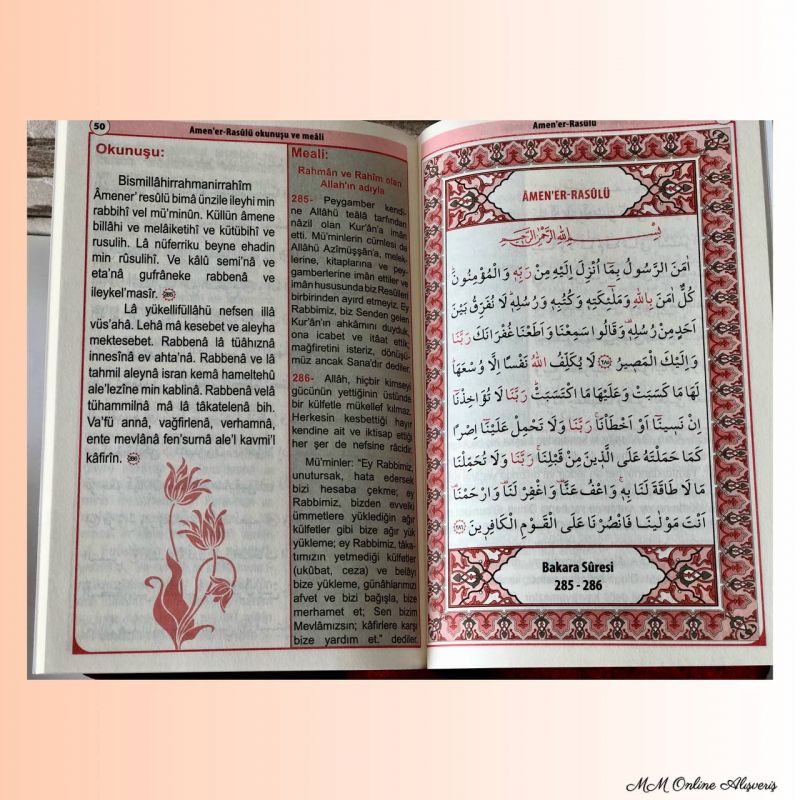 50
Âmen'er-Rasûlü okunuşu ve meâli
Okunuşu:
Bismillâhirrahmanirrahîm
Âmener' resûlü bimâ ünzile ileyhi min
rabbihî vel mü'minûn. Küllün âmene
billâhi ve melâiketihî ve kütübihî ve
rusulih. Lâ nüferriku beyne ehadin
min rûsulihî. Ve kâlû semi'nâ ve
eta'nâ gufrâneke rabbenâ ve
ileykel'masîr. 285
Lâ yükellifüllâhü nefsen illâ
vüs'ahâ. Lehâ mâ kesebet ve aleyha
mektesebet. Rabbenâ lâ tüâhıznâ
innesînâ ev ahta'nâ. Rabbenâ ve lâ
tahmil aleynâ isran kemâ hameltehû
ale'lezîne min kablinâ. Rabbenâ velâ
tühammilnâ mâ lâ tâkatelenâ bih.
Va'fü annâ, vağfirlenâ, verhamnâ,
ente mevlânâ fen'surnâ ale'l kavmi'l
kâfirîn. 286
Meali:
Rahmân ve Rahîm olan
Allah'ın adıyla
285- Peygamber kendi-
ne Allâhü teâlâ tarfından
nâzil olan Kur'ân'a imân
etti. Mü'minlerin cümlesi de
Allâhü Azîmüşşân'a, melek-
lerine, kitaplarına ve pey-
gamberlerine imân ettiler ve
imân hususunda biz Resûlleri
birbirinden ayırd etmeyiz. Ey
Rabbimiz, biz Senden gelen
Kur'ân'ın ahkâmını duyduk,
ona icabet ve itâat ettik;
mağfiretini isteriz, dönüşü-
müz ancak Sana'dır dediler.
286- Allâh, hiçbir kimseyi
gücünün yettiğinin üstünde
bir külfetle mükellef kılmaz.
Herkesin kesbettiği hayır
kendine ait ve iktisap ettiği
her şer de nefsine râcidir.
Mü'minler: "Ey Rabbimiz,
unutursak, hata edersek
bizi hesaba çekme; ey
Rabbimiz, bizden evvelki
ümmetlere yüklediğin ağır
külfetler gibi bize ağır yük
yükleme; ey Rabbimiz, tâka-
tımızın yetmediği külfetler
(ukûbat, ceza) ve belâyı
bize yükleme, günâhlarımızı
afvet ve bizi bağışla, bize
merhamet et; Sen bizim
Mevlâmızsın; kâfirlere karşı
bize yardım et." dediler.
Âmen'er-Rasûlü
ÂMEN'ER-RASÛLÜ
بِسْمِ اللّٰهِ الرَّحْمٰنِ الرَّحِيمِ
اٰمَنَ الرَّسُولُ بِمَٓا اُنْزِلَ اِلَيْهِ مِنْ رَبِّه۪ وَالْمُؤْمِنُونَۜ
كُلٌّ اٰمَنَ بِاللّٰهِ وَمَلٰٓئِكَتِه۪ وَكُتُبِه۪ وَرُسُلِه۪ۜ لَا نُفَرِّقُ بَيْنَ
اَحَدٍ مِنْ رُسُلِه۪۠ وَقَالُوا سَمِعْنَا وَاَطَعْنَا غُفْرَانَكَ رَبَّنَا
وَاِلَيْكَ الْمَص۪يرُ ٢٨٥ لَا يُكَلِّفُ اللّٰهُ نَفْسًا اِلَّا وُسْعَهَاۜ
لَهَا مَا كَسَبَتْ وَعَلَيْهَا مَا اكْتَسَبَتْۜ رَبَّنَا لَا تُؤَاخِذْنَٓا
اِنْ نَس۪ينَٓا اَوْ اَخْطَأْنَاۚ رَبَّنَا وَلَا تَحْمِلْ عَلَيْنَٓا اِصْرًا
كَمَا حَمَلْتَهُ عَلَى الَّذ۪ينَ مِنْ قَبْلِنَاۚ رَبَّنَا وَلَا تُحَمِّلْنَا
مَا لَا طَاقَةَ لَنَا بِه۪ۚ وَاعْفُ عَنَّا۠ وَاغْفِرْ لَنَا۠ وَارْحَمْنَا۠
اَنْتَ مَوْلٰينَا فَانْصُرْنَا عَلَى الْقَوْمِ الْكَافِر۪ينَ ٢٨٦
Bakara Sûresi
285 - 286
MM Online Alışveriş